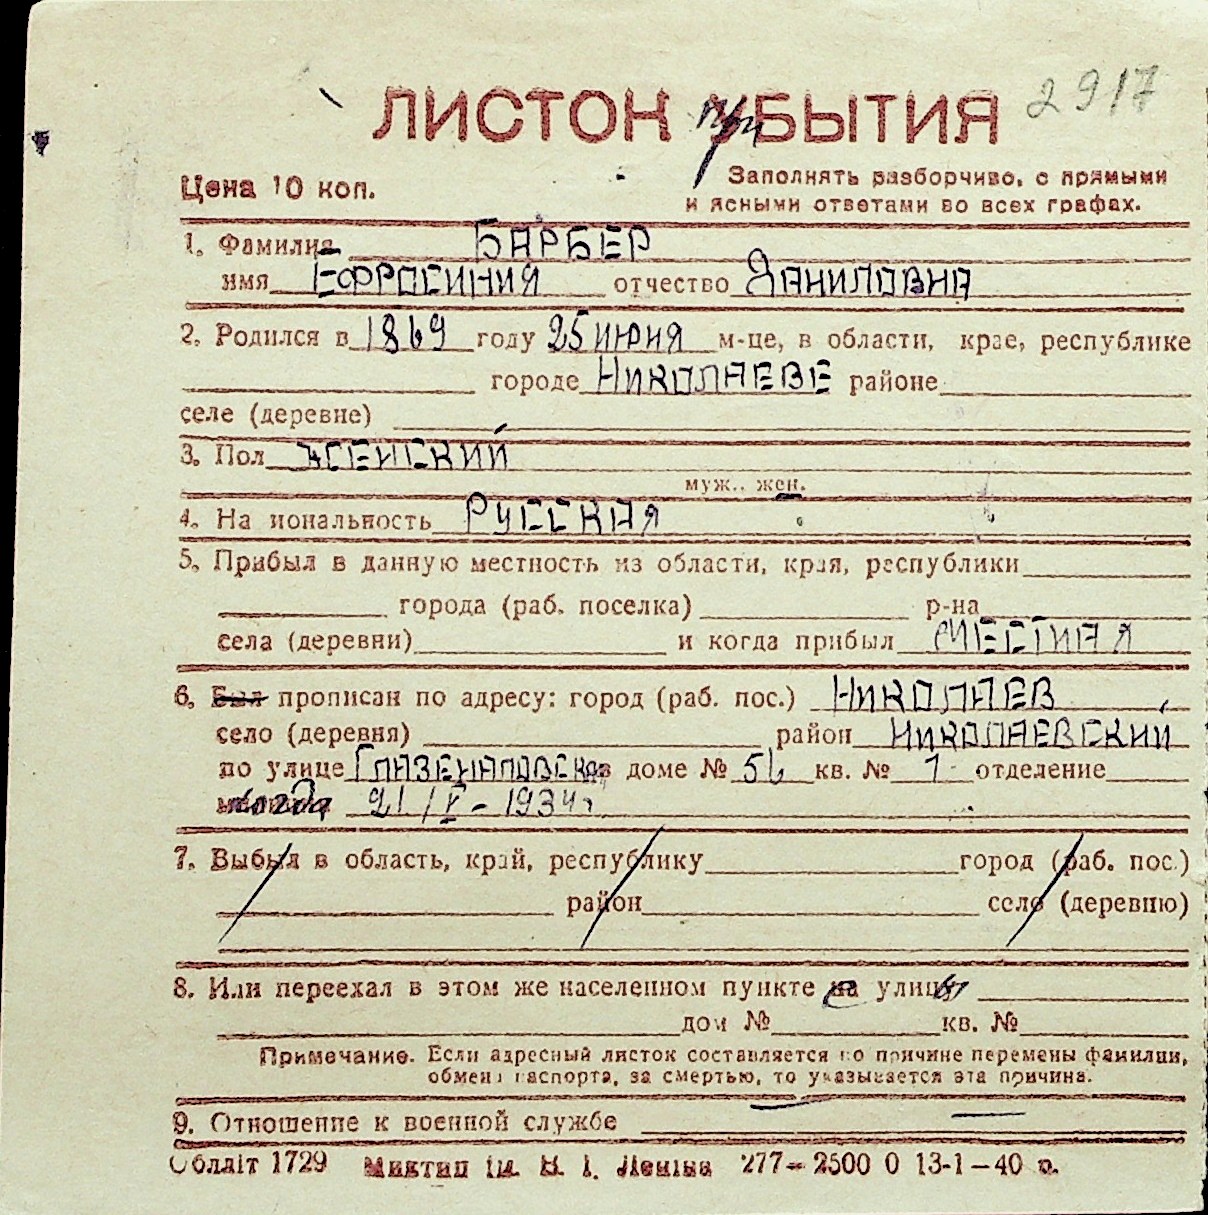 2917
ЛИСТОК при УБЫТИЯ
Цена 10 коп.
Заполнять разборчиво, с прямыми
и ясными ответами во всех графах.
1. Фамилия БАРБЕР
имя ЕФРОСИНИЯ отчество ДАНИЛОВНА
2. Родился в 1869 году 25 ИЮНЯ м-це, в области, крае, республике
городе НИКОЛАЕВЕ районе
селе (деревне)
3. Пол ЖЕНСКИЙ
муж., жен.
4. На иональность РУССКАЯ
5. Прибыл в данную местность из области, края, республики
города (раб. поселка) р-на
села (деревни) и когда прибыл МЕСТНАЯ
6. Был прописан по адресу: город (раб. пос.) НИКОЛАЕВ
село (деревня) район НИКОЛАЕВСКИЙ
по улице ГЛАЗЕНАПОВСКАЯ в доме № 56 кв. № 1 отделение
когда 21/V-1934г.
7. Выбыл в область, край, республику город (раб. пос.)
район село (деревню)
8. Или переехал в этом же населенном пункте с на улицы
дом № кв. №
Примечание. Если адресный листок составляется по причине перемены фамилии,
обмена паспорта, за смертью, то указывается эта причина.
9. Отношение к военной службе
Облліт 1729 Миктип ім. В. І. Леніна 277—2500 0 13-1—40 р.